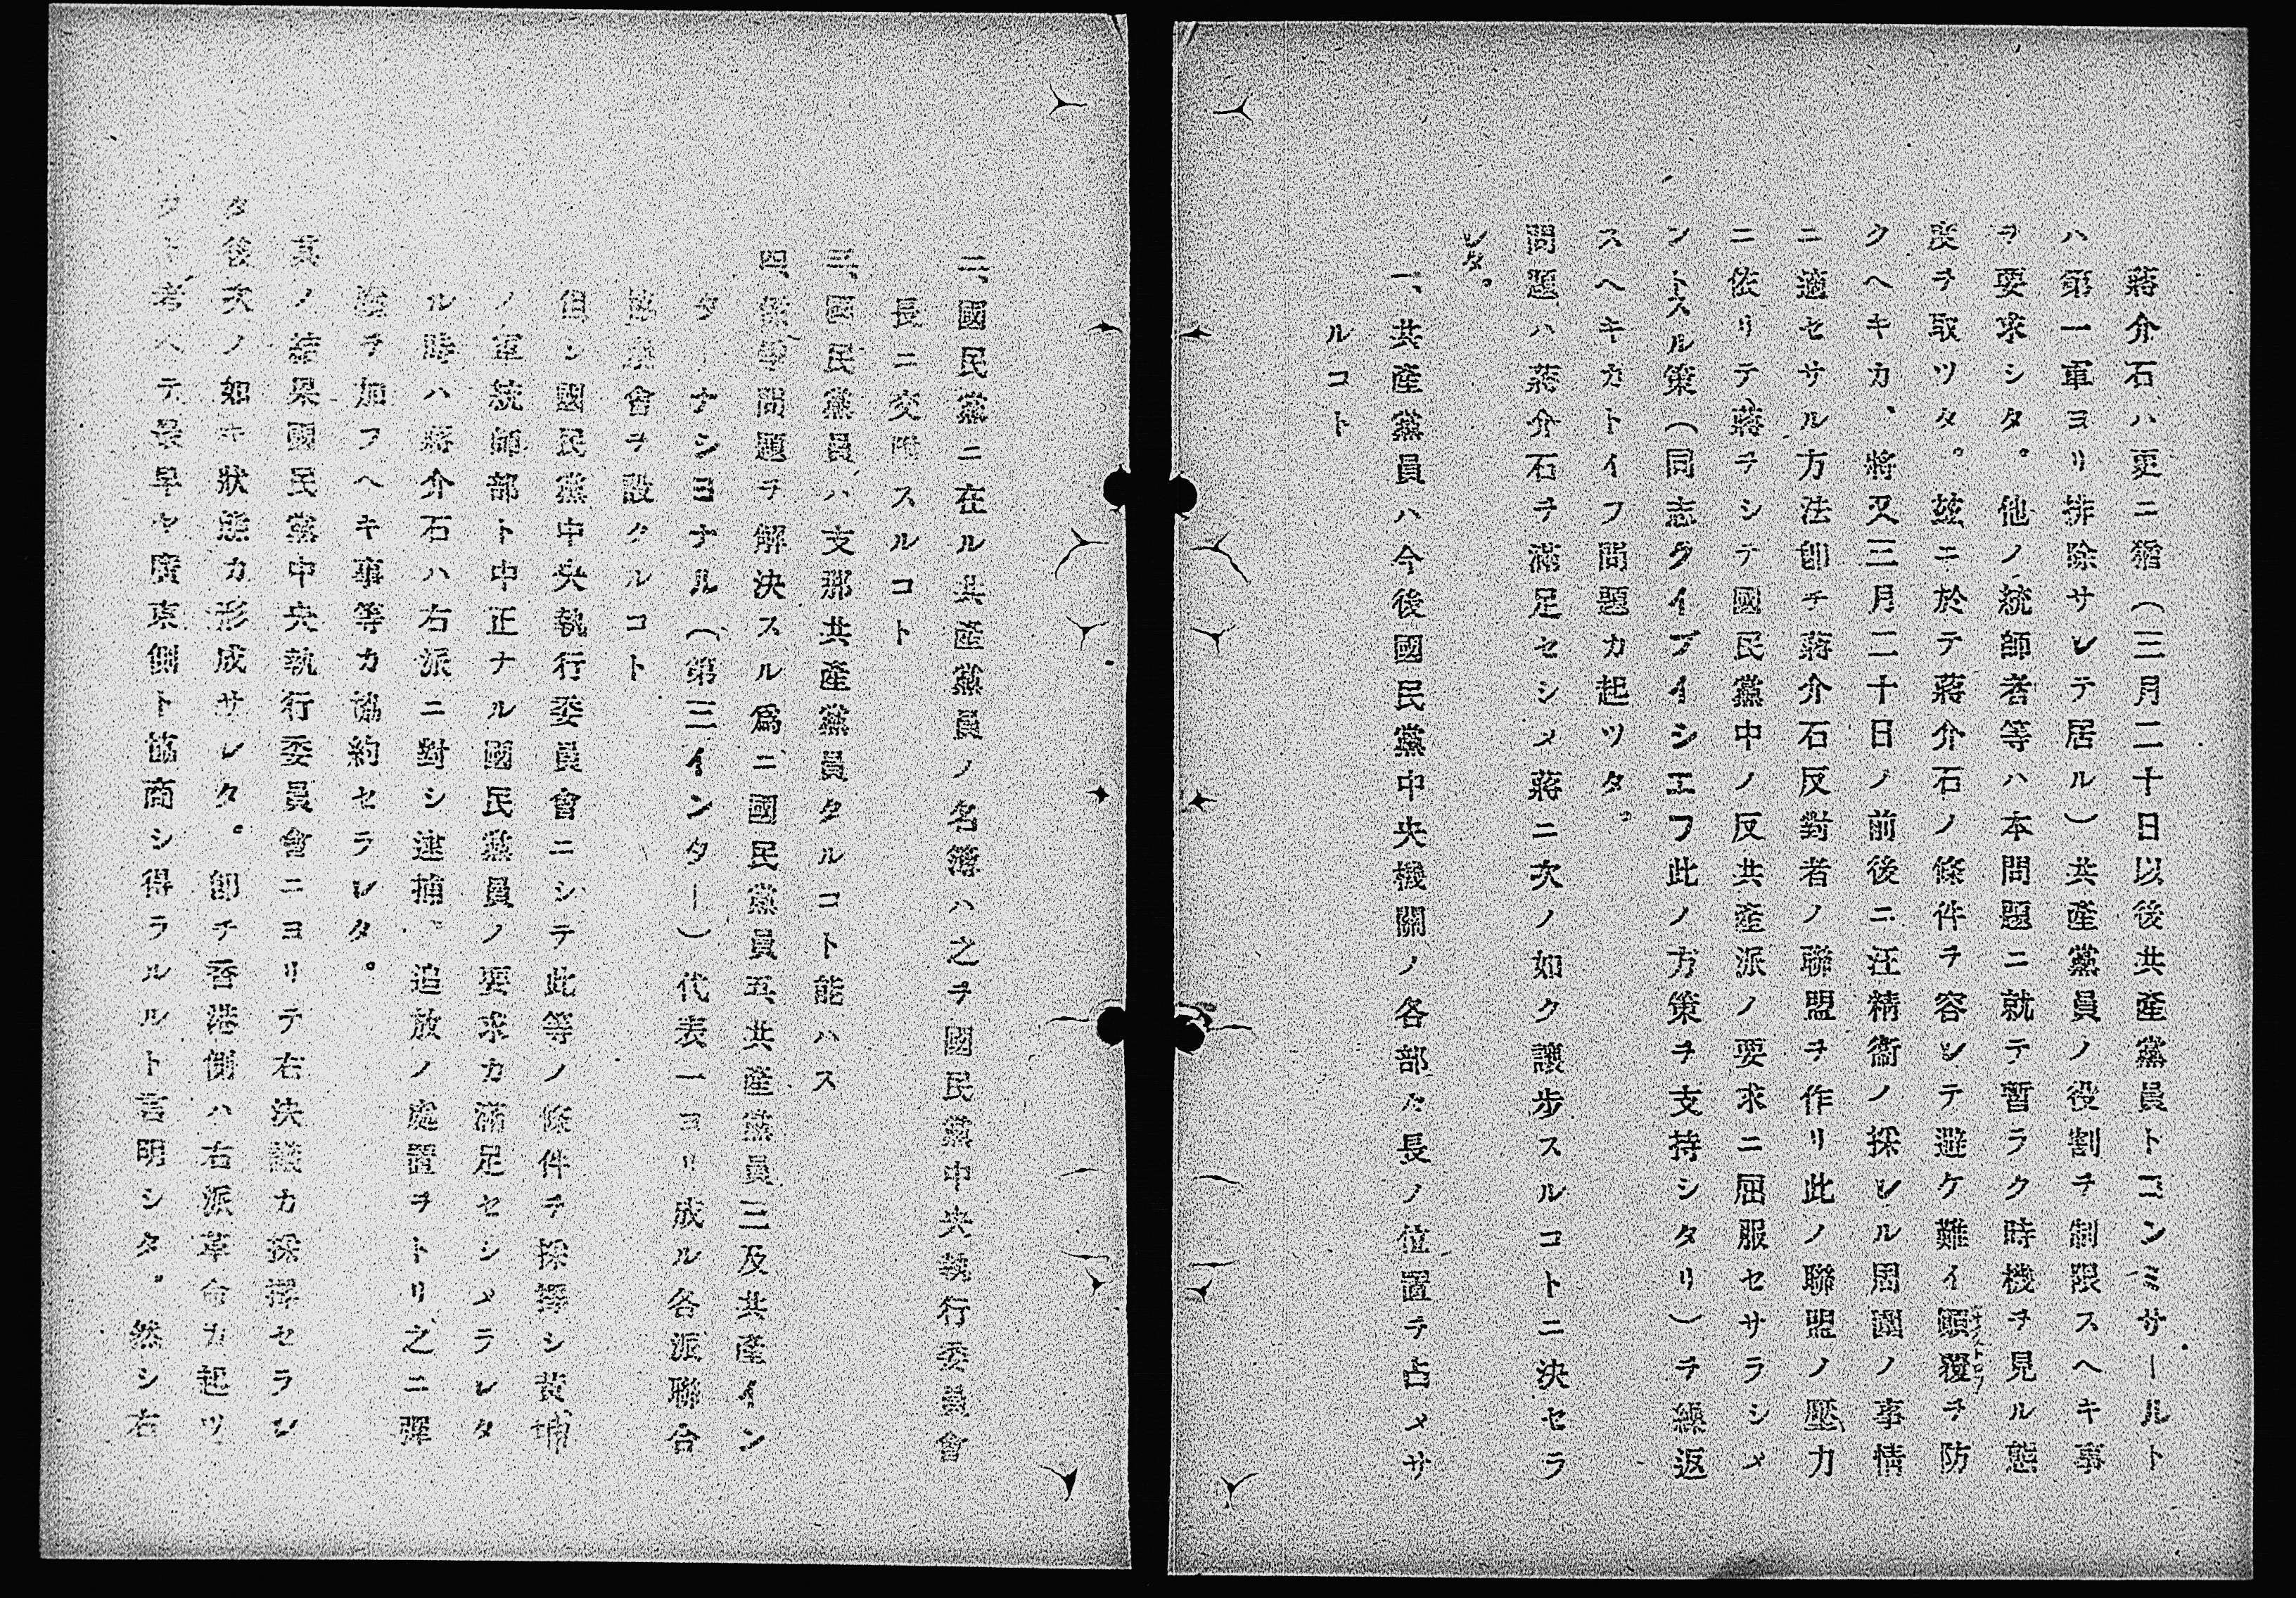 蔣介石ハ更ニ猶（三月二十日以後共產黨員トコンミサールト
ハ第一軍ヨリ排除サレテ居ル）共產黨員ノ役割ヲ制限スヘキ事
ヲ要求シタ。他ノ統師者等ハ本問題ニ就テ暫ラク時機ヲ見ル態
度ヲ取ツタ。玆ニ於テ蔣介石ノ條件ヲ容レテ避ケ難イ顚覆ヲ防
クヘキカ、將又三月二十日ノ前後ニ汪精衞ノ採レル周圍ノ事情
ニ適セサル方法卽チ蔣介石反對者ノ聯盟ヲ作リ此ノ聯盟ノ壓力
ニ依リテ蔣ヲシテ國民黨中ノ反共產派ノ要求ニ屈服セサラシメ
ントスル策（同志タイブイシエフ此ノ方策ヲ支持シタリ）ヲ繰返
スヘキカトイフ問題カ起ツタ。
問題ハ蔣介石ヲ滿足セシメ蔣ニ次ノ如ク讓步スルコトニ決セラ
レタ。
一、共產黨員ハ今後國民黨中央機關ノ各部々長ノ位置ヲ占メサ
ルコト
二、國民黨ニ在ル共產黨員ノ名簿ハ之ヲ國民黨中央執行委員會
長ニ交附スルコト
三、國民黨員ハ支那共產黨員タルコト能ハス
四、係爭問題ヲ解決スル爲ニ國民黨員五、共產黨員三及共產イン
ターナシヨナル（第三インター）代表一ヨリ成ル各派聯合
協議會ヲ設クルコト
但シ國民黨中央執行委員會ニシテ此等ノ條件ヲ採擇シ黃埔
ノ軍統師部ト中正ナル國民黨員ノ要求カ滿足セシメラレタ
ル時ハ蔣介石ハ右派ニ對シ逮捕、追放ノ處置ヲトリ之ニ彈
壓ヲ加フヘキ事等カ協約セラレタ。
其ノ結果國民黨中央執行委員會ニヨリテ右決議カ採擇セラレ
タ後次ノ如キ狀態カ形成サレタ。卽チ香港側ハ右派革命カ起ツ
タト考ヘテ最早ヤ廣東側ト協商シ得ラルルト言明シタ。然シ右